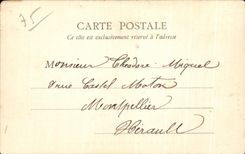 75
CARTE POSTALE
Ce côté est exclusivement réservé à l'adresse
Monsieur Théodore Miquel
rue Castel Moton
Montpellier
Hérault